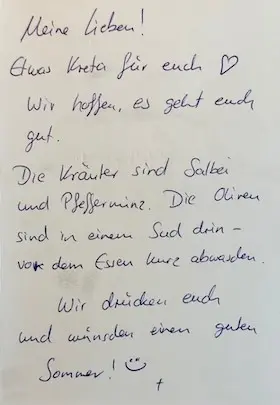 Meine Lieben!
Etwas Kreta für euch ♡
Wir hoffen, es geht euch
gut.
Die Kräuter sind Salbei
und Pfefferminz. Die Oliven
sind in einem Sud drin –
vor dem Essen kurz abwaschen.
Wir drücken euch
und wünschen einen guten
Sommer! ☺